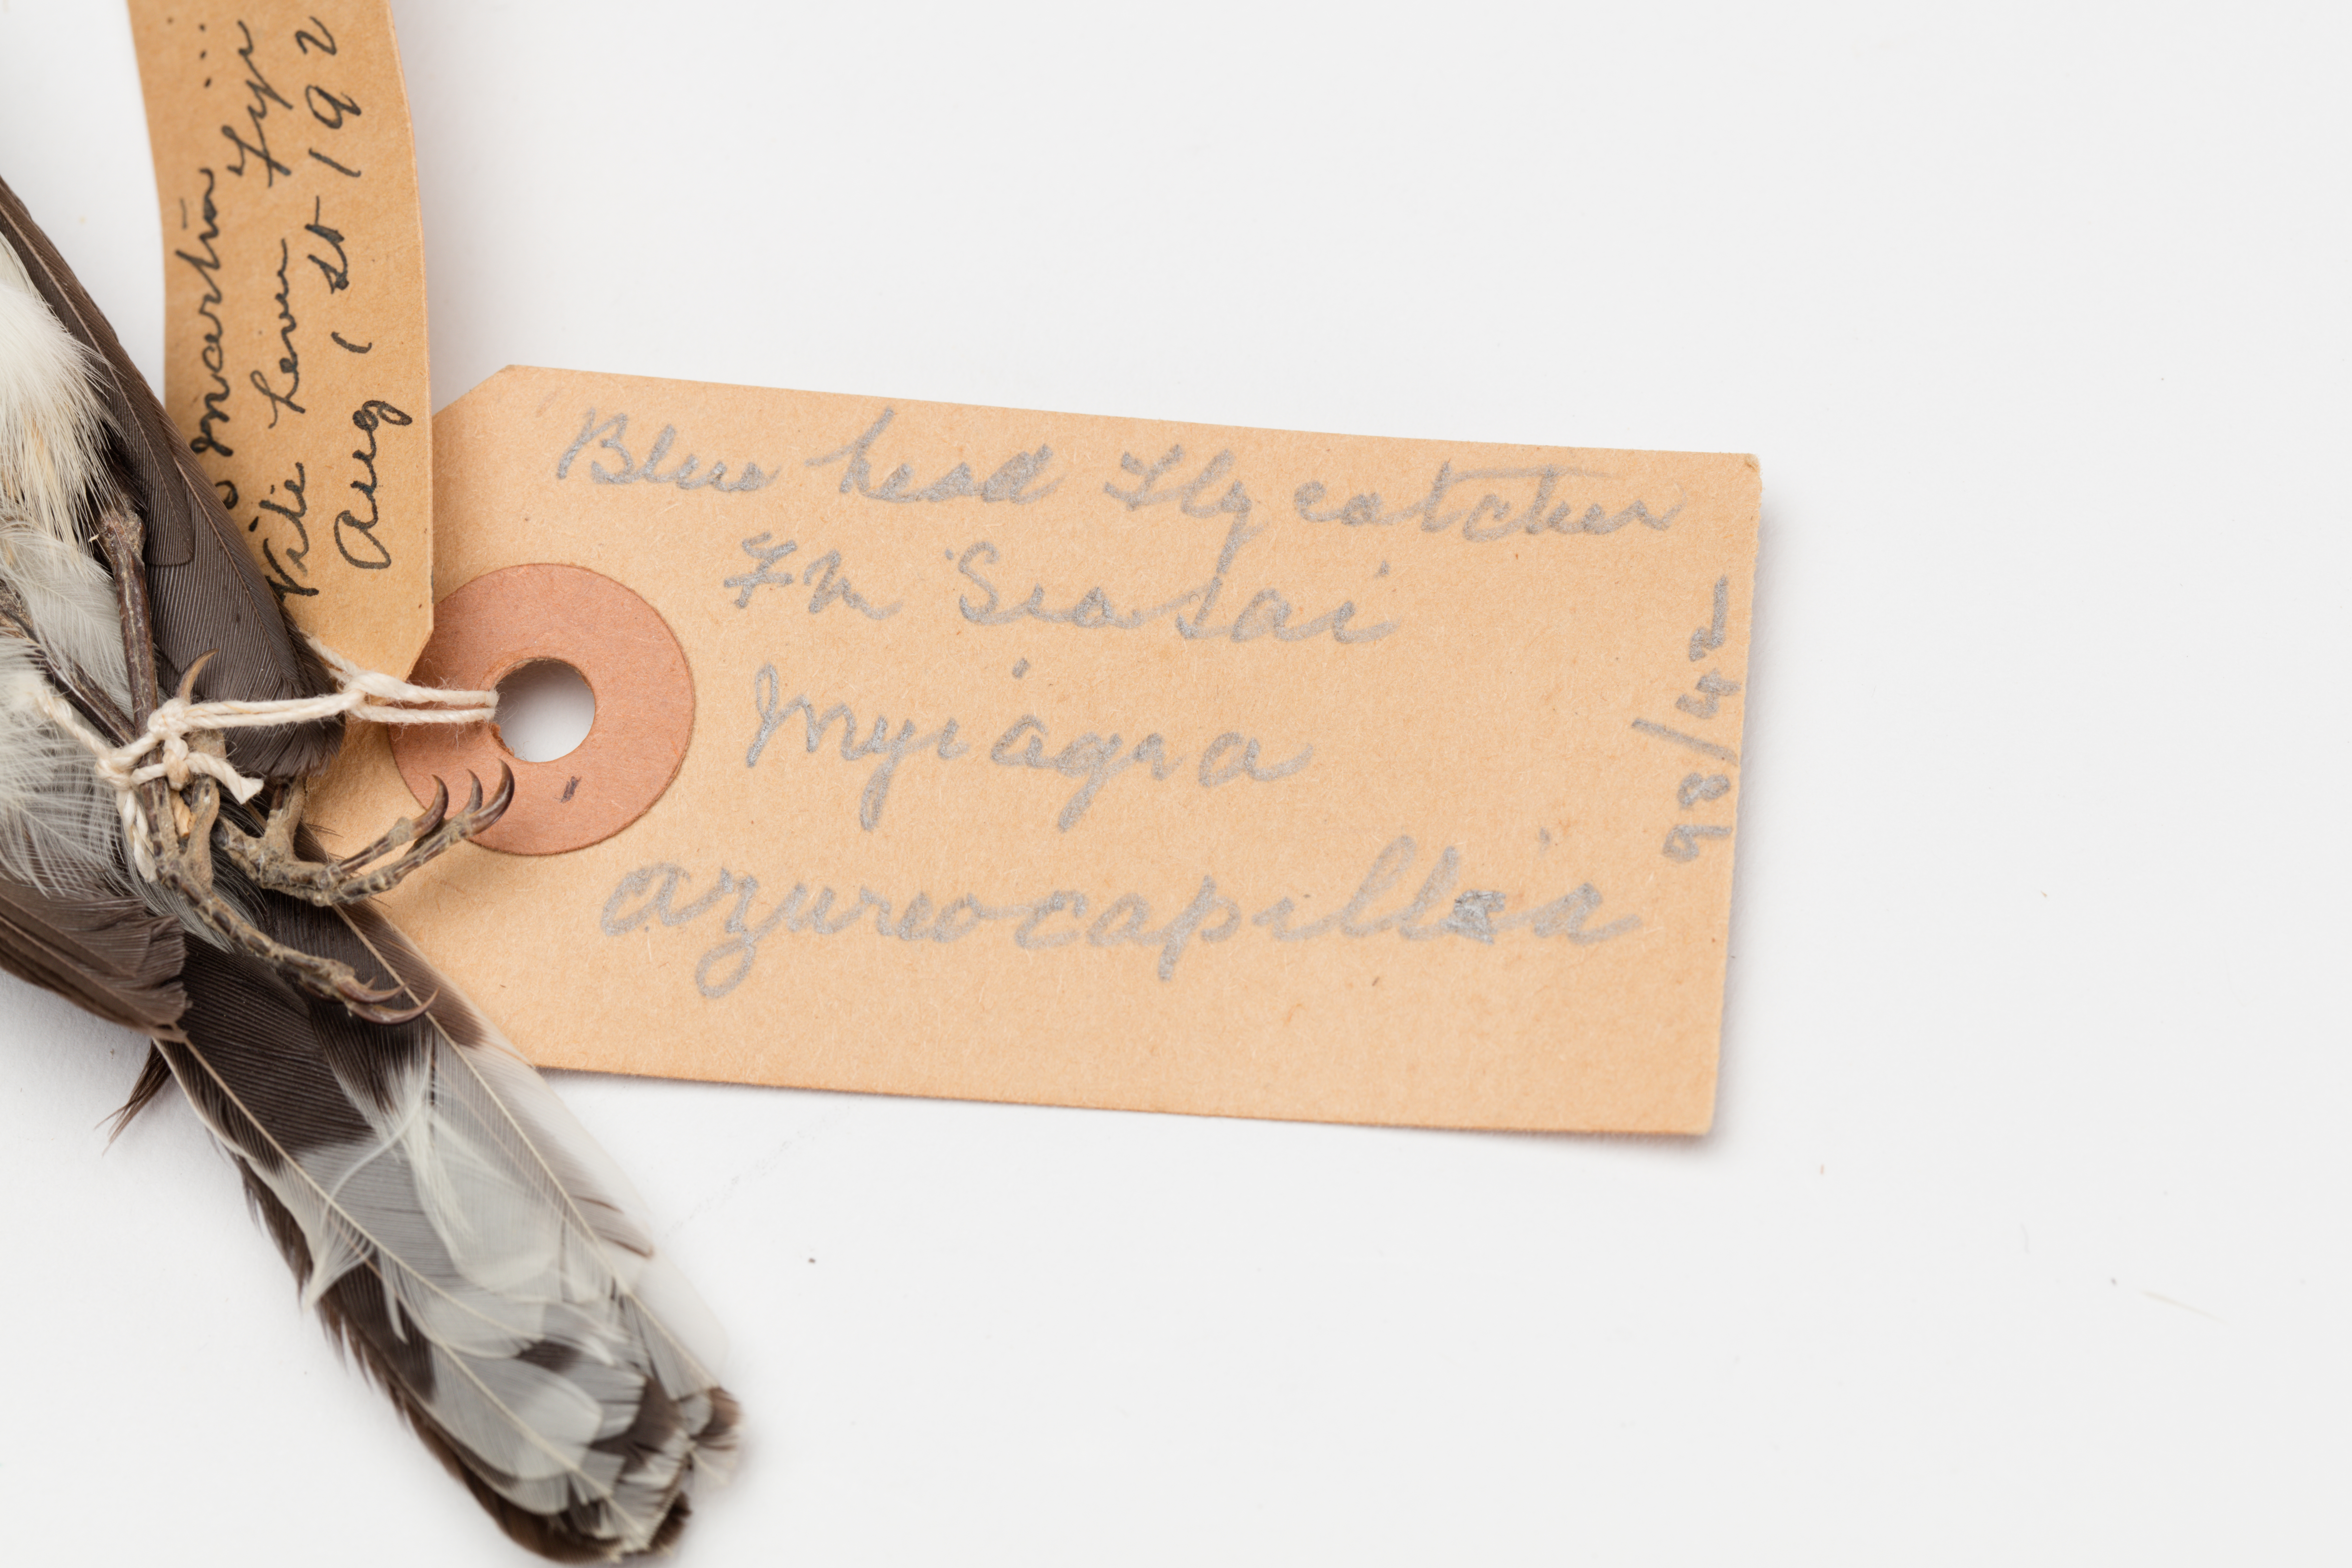 Martin
Viti Levu Fiji
Aug 1 st 192
Blue head Fly catcher
Fn Siasai
Myiagra
azureocapilla
98/42